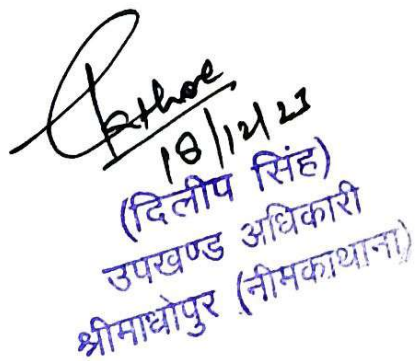 Rathore
18/12/23
(दिलीप सिंह)
उपखण्ड अधिकारी
श्रीमाधोपुर (नीमकाथाना)